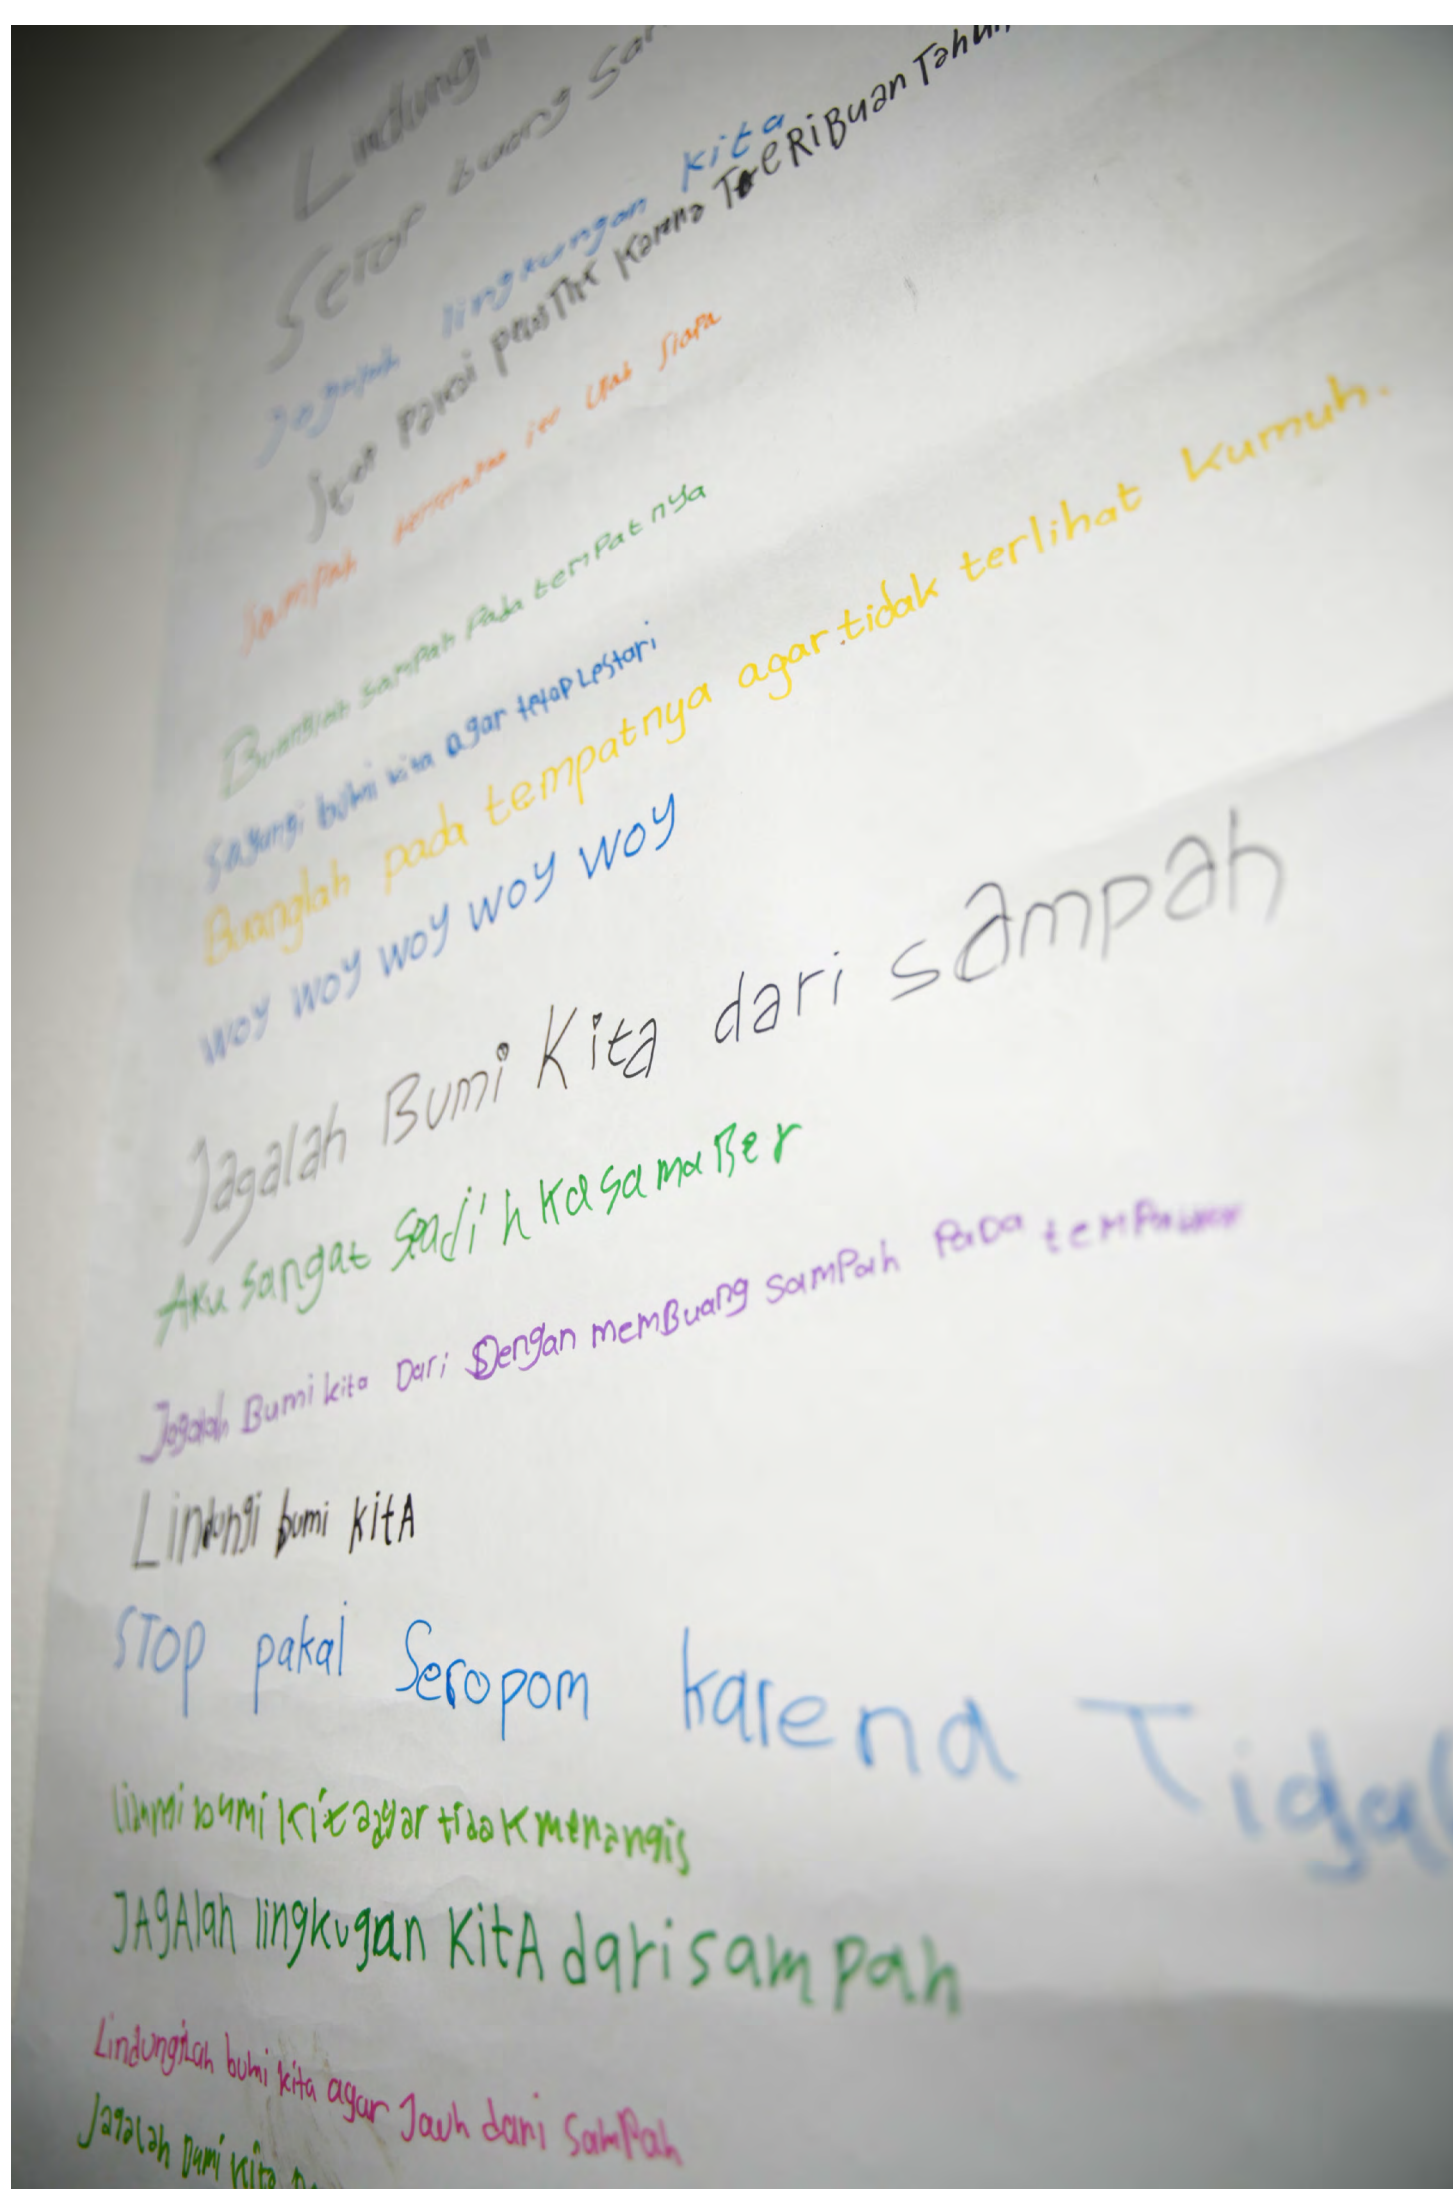 Lindungi
Setop buang
Jagalah lingkungan kita
pakai karena TeRiBuan Tahun
Sampah itu Ulah Siapa
Buanglah sampah Pada tempatnya
Sayangi bumi kita agar tetap Lestari
Buanglah pada tempatnya agar tidak terlihat kumuh.
woy woy woy woy woy
Jagalah Bumi Kita dari sampah
Aku sangat Seadih Kasama Ber
Jagalah Bumi kita Dari Dengan memBuang SamPah PaDa
Lindungi bumi kitA
STOP pakai Seropom karena Tidak
bumi Kita agar tidak menangis
JAgAlah lingkugan KitA dari sampah
LindungiLah bumi kita agar Jauh dari SamPah
Jagalah bumi kita